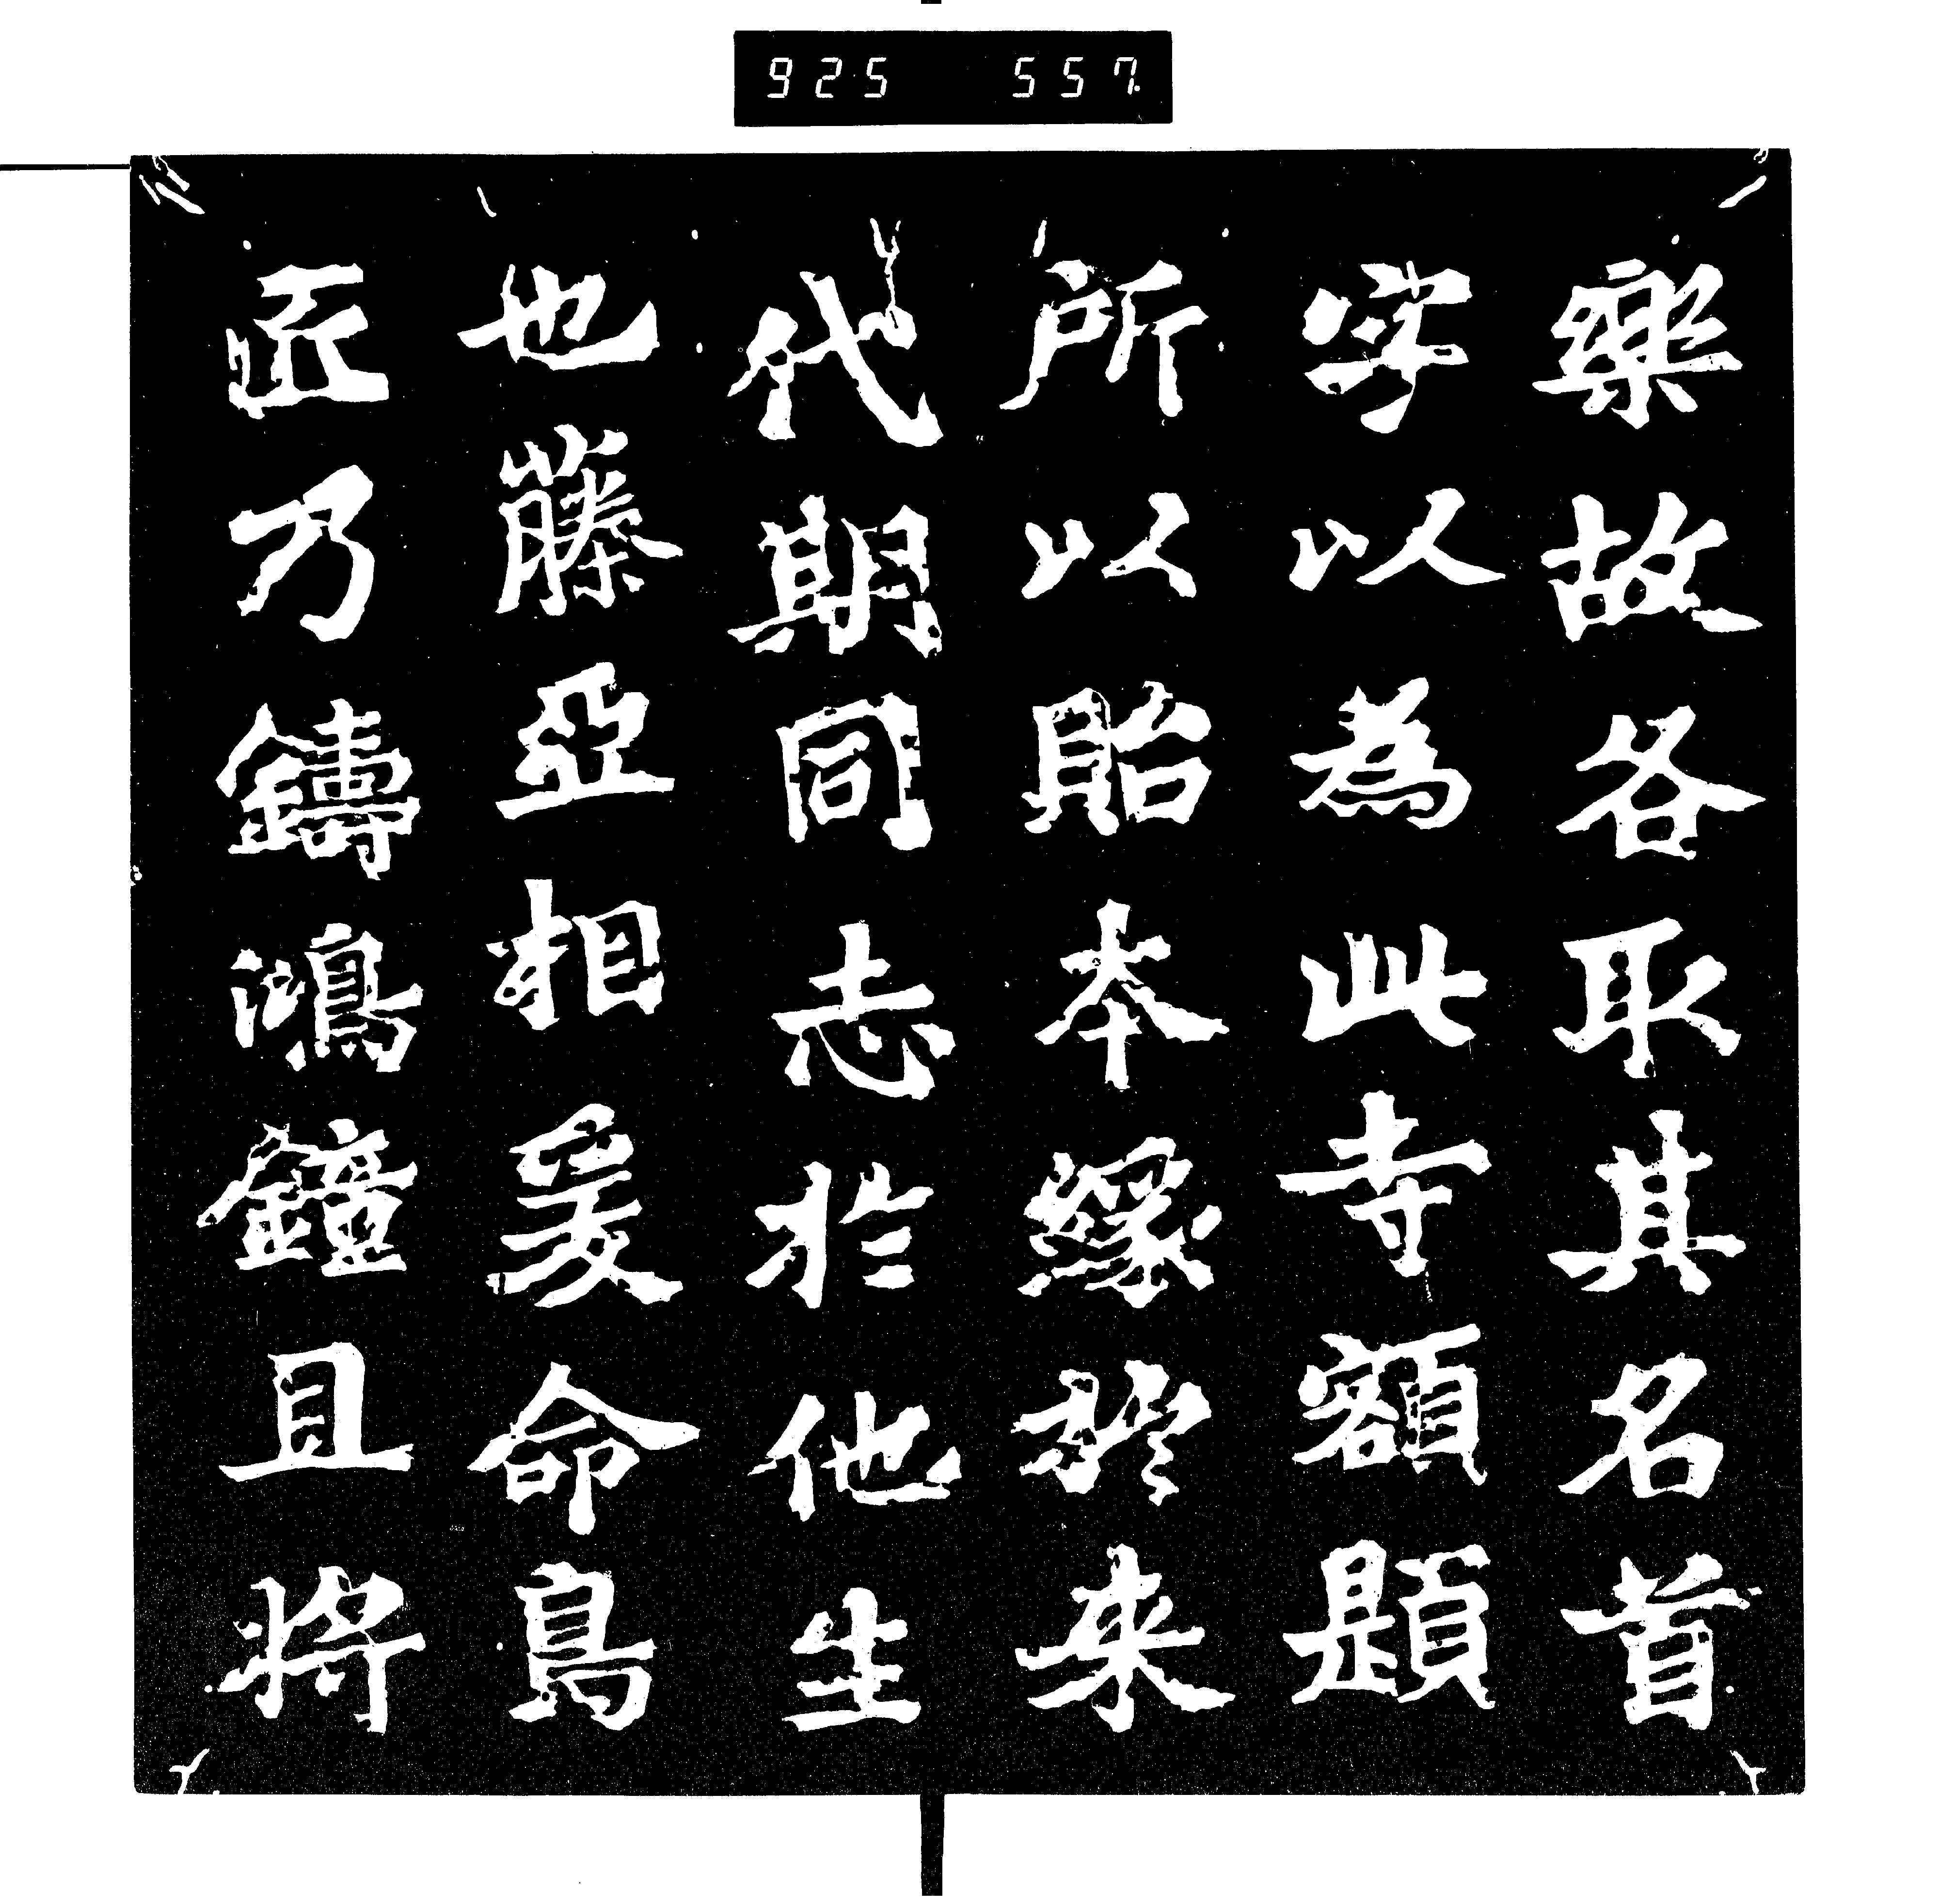 925 557.
樂故各取其名首
字以為此寺額題
所以貽本緣於来
代期同志於他生
也藤亞相爰命鳧
匠乃鑄鴻鐘且將